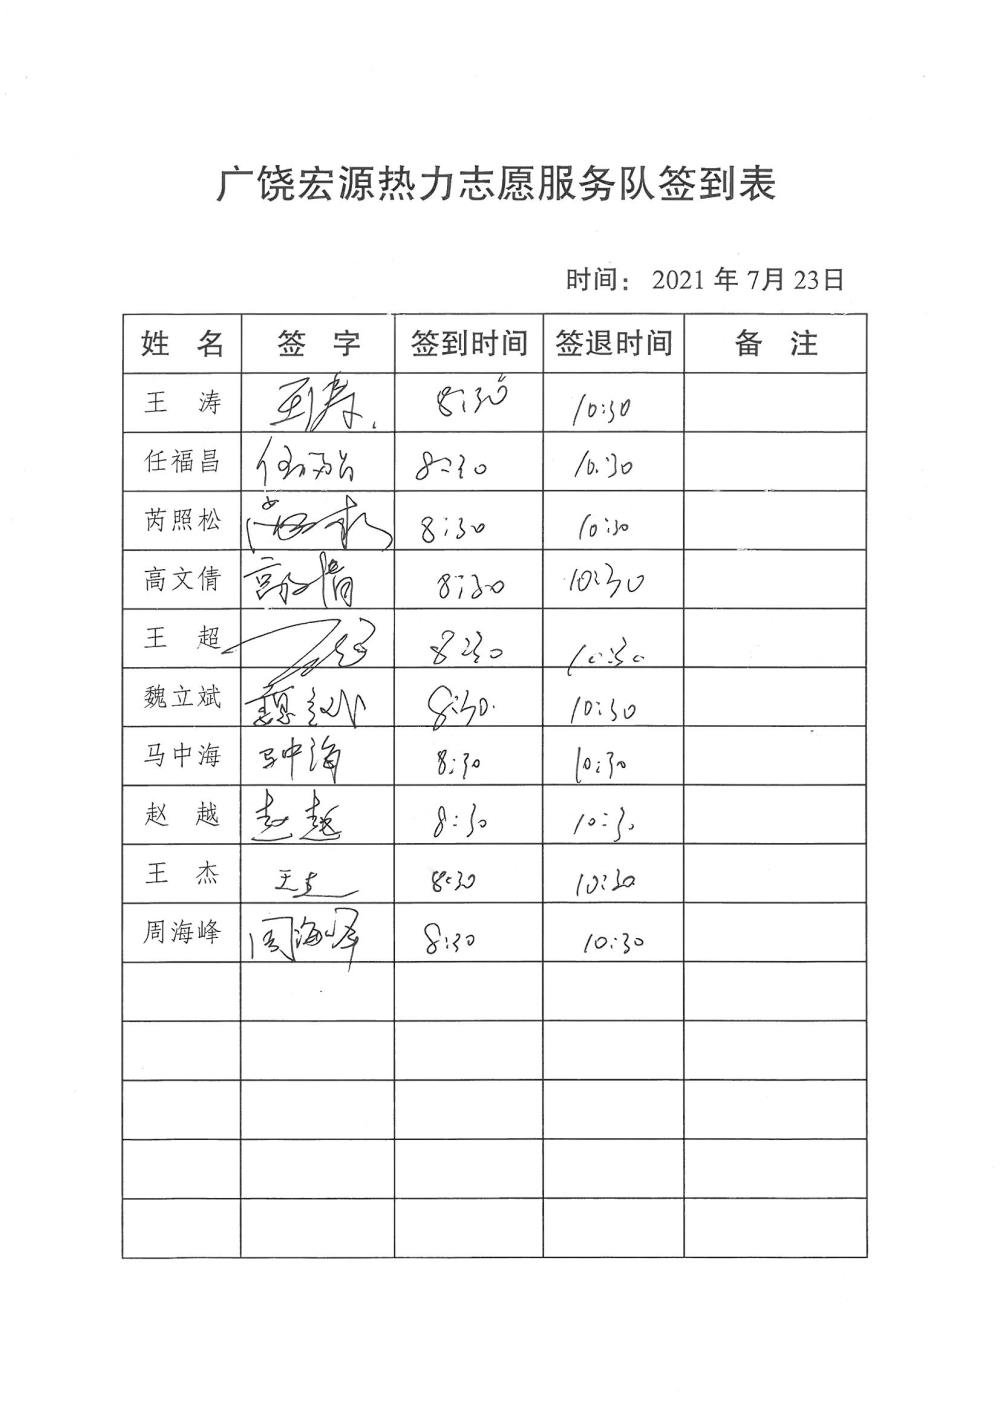 广饶宏源热力志愿服务队签到表
时间： 2021 年 7月 23日
姓 名 签 字 签到时间 签退时间 备 注
王 涛 王涛 8:30 10:30
任福昌 任福昌 8:30 10:30
芮照松 8:30 10:30
高文倩 高文倩 8:30 10:30
王 超 王超 8:30 10:30
魏立斌 魏立斌 8:30 10:30
马中海 马中海 8:30 10:30
赵 越 赵越 8:30 10:30
王 杰 王杰 8:30 10:30
周海峰 周海峰 8:30 10:30